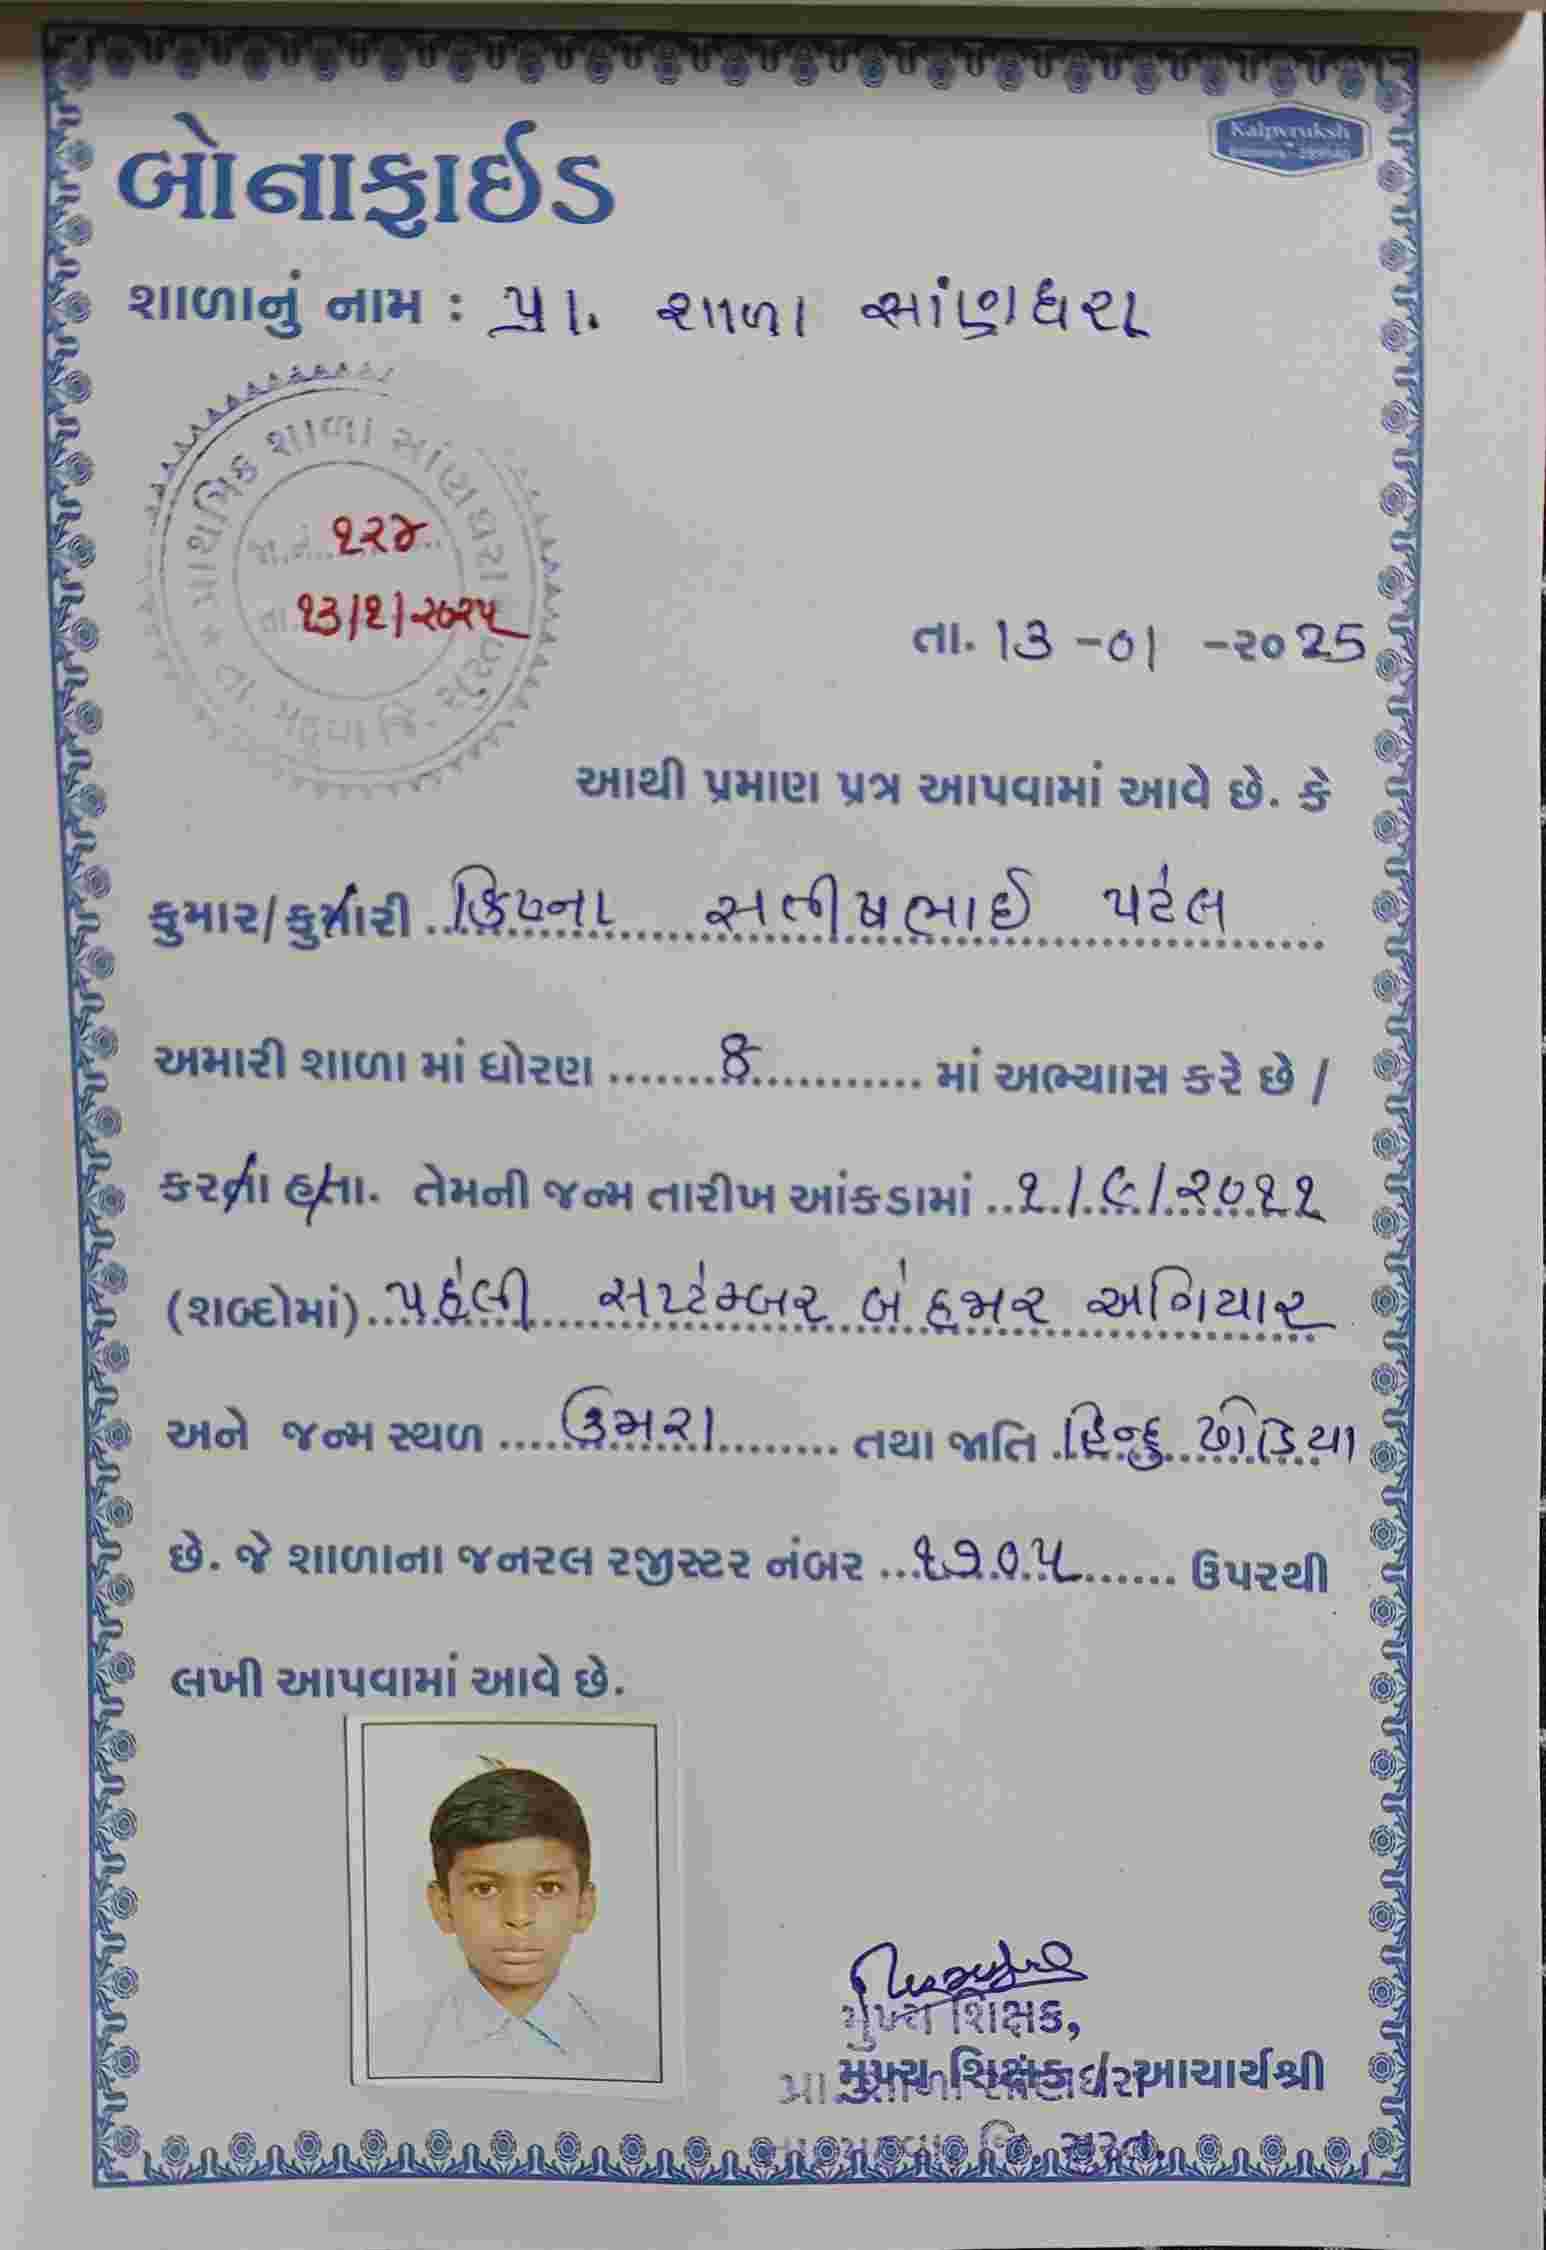 Kalpvruksh
બોનાફાઈડ
શાળાનું નામ : પ્રા. શાળા સાંણધરા
પ્રાથમિક શાળા સાંણધરા
જા.નં. ૧૨૪
તા. ૧૩/૧/૨૦૨૫
તા. મહુવા જિ. સુરત
તા. 13 -01 -૨૦25
આથી પ્રમાણ પત્ર આપવામાં આવે છે. કે
કુમાર/કુમારી ક્રિષ્ના સતીષભાઈ પટેલ
અમારી શાળા માં ધોરણ 8 માં અભ્યાાસ કરે છે /
કરતા હતા. તેમની જન્મ તારીખ આંકડામાં ૧/૯/૨૦૧૧
(શબ્દોમાં) પહેલી સપ્ટેમ્બર બે હજાર અગિયાર
અને જન્મ સ્થળ ઉમરા તથા જાતિ હિન્દુ ધોડિયા
છે. જે શાળાના જનરલ રજીસ્ટર નંબર ૧૭૦૫ ઉપરથી
લખી આપવામાં આવે છે.
મુખ્ય શિક્ષક,
મુખ્ય શિક્ષક / આચાર્યશ્રી
પ્રા. શાળા સાંણધરા
સુરત.